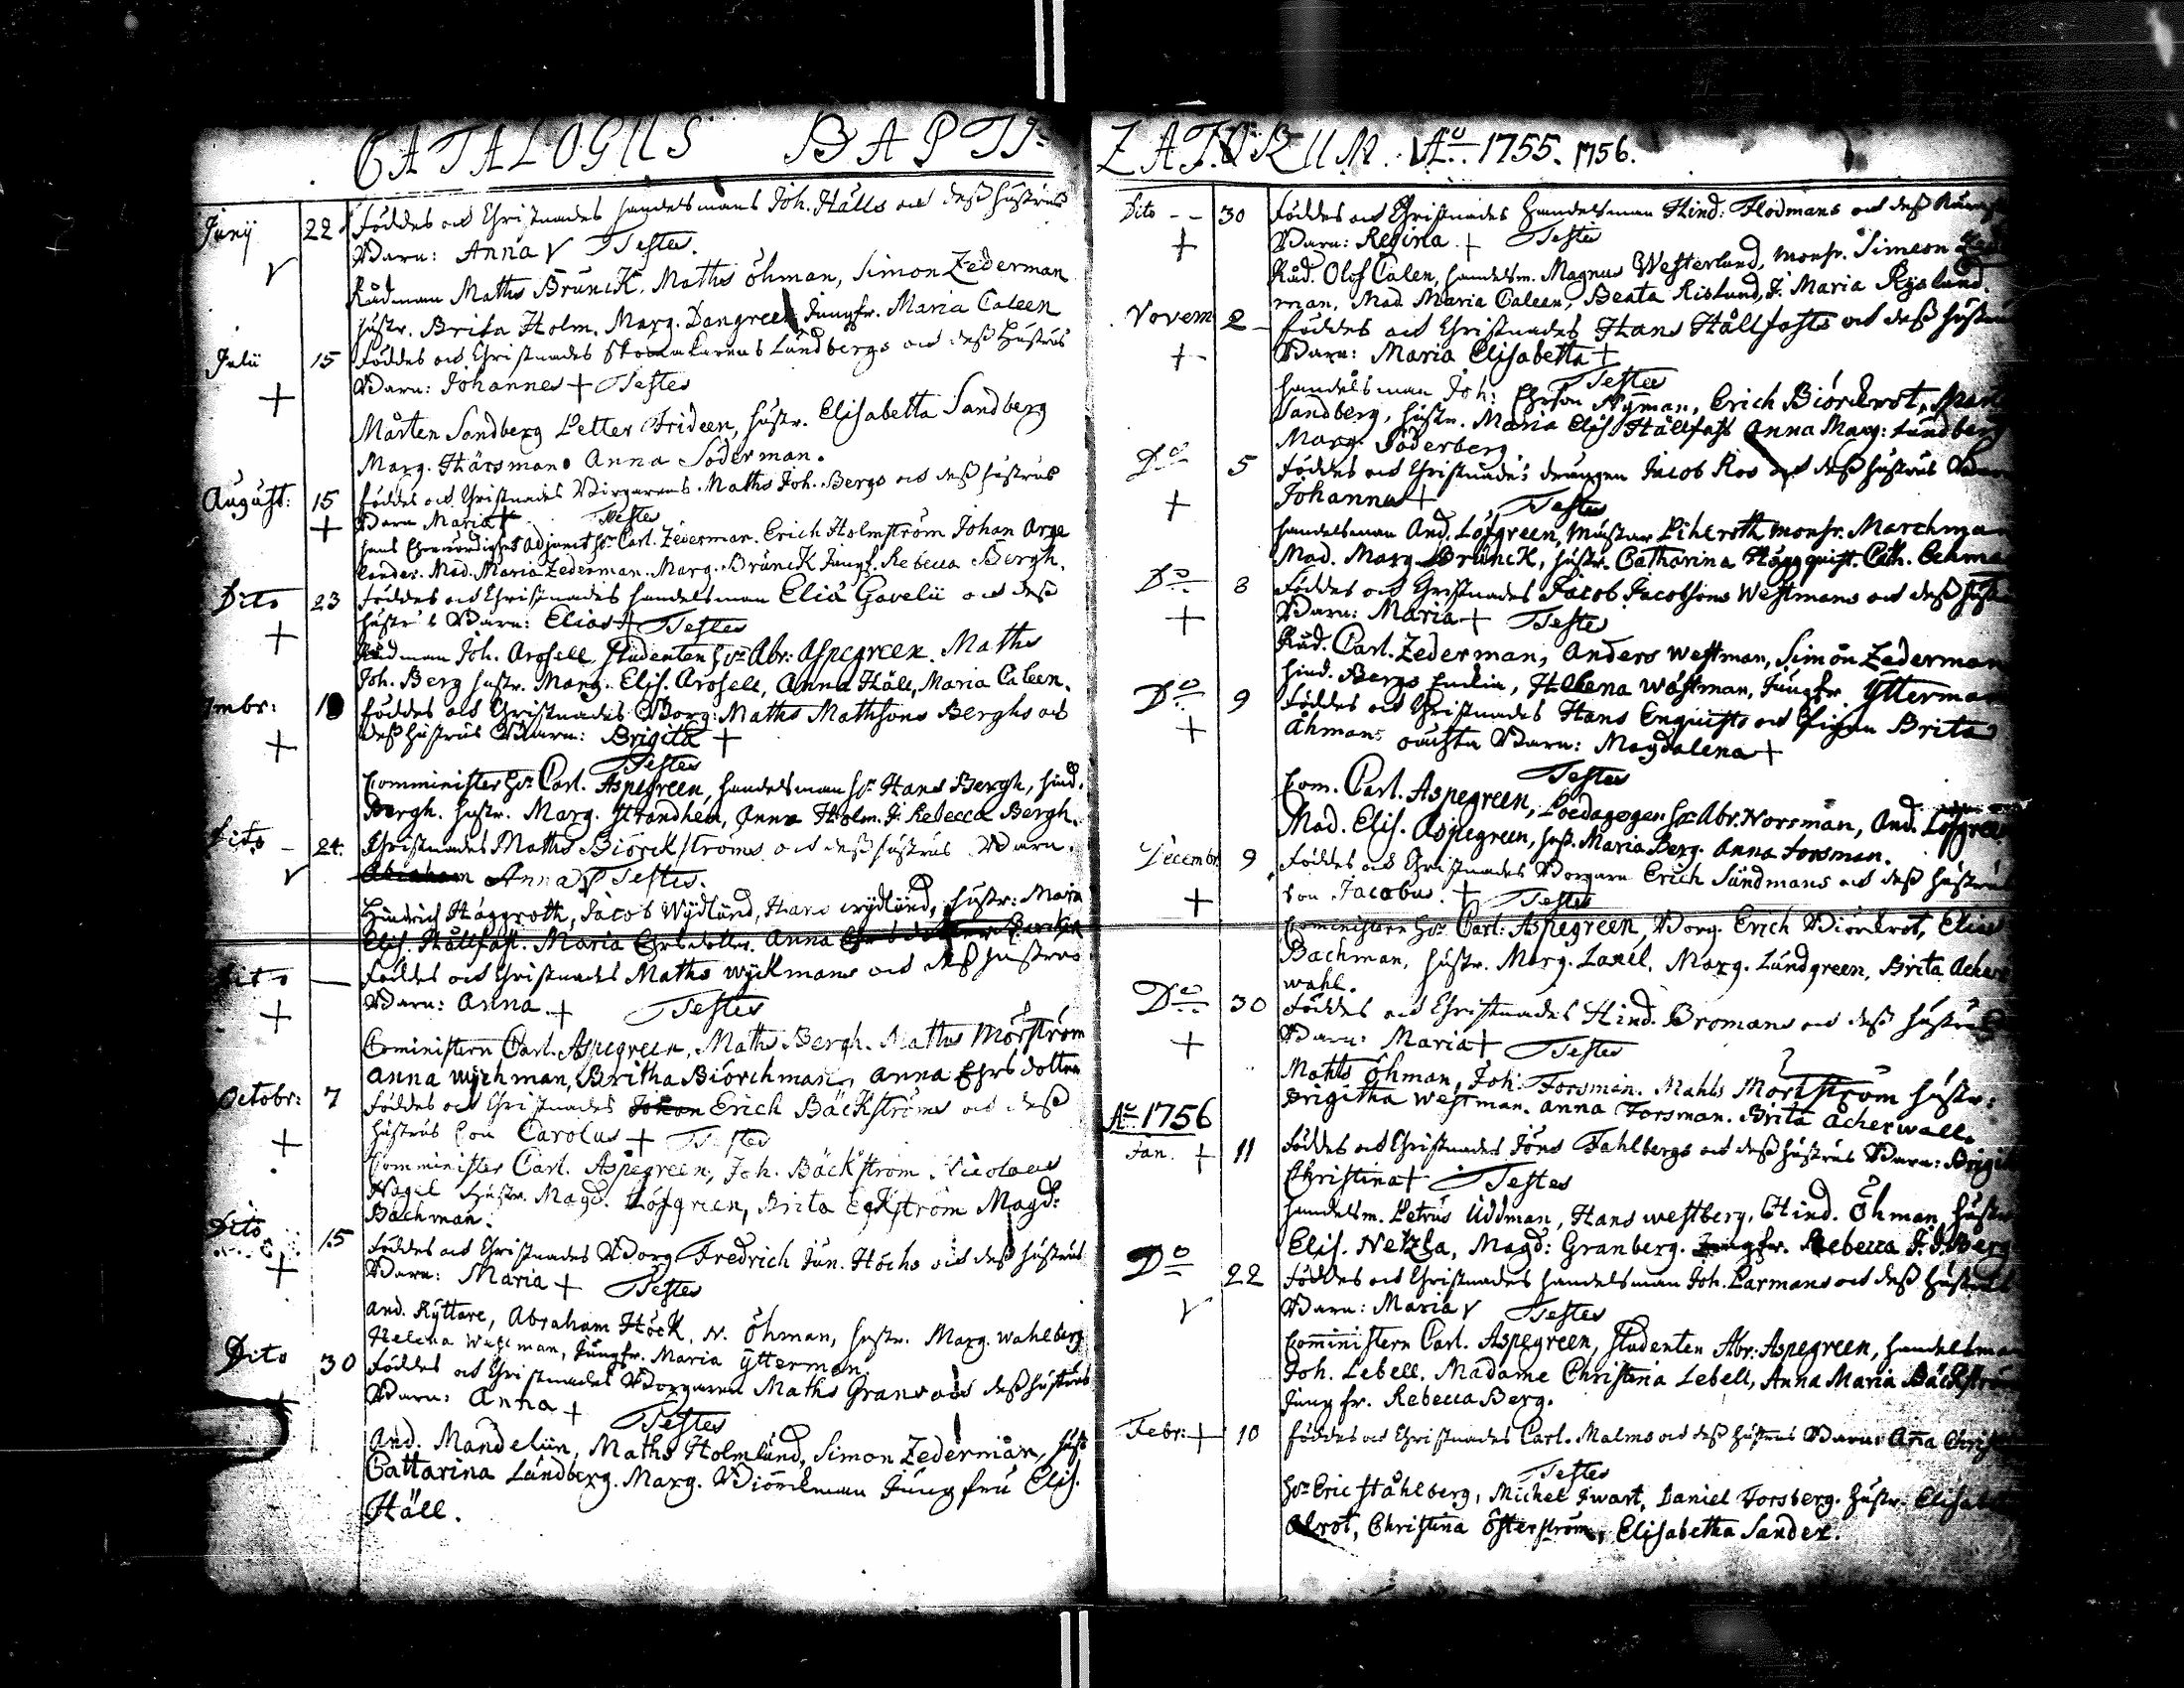 CATALOGUS BAPTI=
Junij 22 Föddes och Christnades handelsmans Joh. Hälls och deß hustrus
Barn: Anna V Testes.
Rådman Maths Brunck. Maths Öhman, Simon Zederman
hustr. Brita Holm. Marg. Dangreen Jungfr. Maria Caleen
Julii 15 Föddes och Christnades Skomakarens Lundbergs och deß hustrus
+ Barn: Johannes + Testes
Mårten Sandberg Petter Frideen, hustr. Elisabetta Sandberg
Marg. Harsman. Anna Söderman.
August: 15 föddes och Christnades Borgarens Maths Joh. Bergs och deß hustrus
+ Barn Maria + Testes
hans Ehrewördighet Adjunct Hr Carl. Zederman. Erich Holmström Johan Arge
lander. Mad. Maria Zederman. Marg. Brunck Jungf. Rebecca Bergh.
Dito 23 föddes och Christnades handelsman Eliæ Gavelii och deß
+ hustrus Barn: Elias + Testes
Rådman Joh. Arosell, Studenten Hr Abr: Aspegreen. Maths
Joh. Berg hustr. Marg. Elis. Arosell, Anna Häll, Maria Caleen.
föddes och Christnades Borg: Maths Mathsons Berghs och
+ deß hustrus Barn: Brigita +
Testes
Comminister Hr Carl. Aspegreen, handelsman Hr Hans Bergh, hind.
Bergh. hustr. Marg. Strandhen, Anna Holm. J. Rebecca Bergh.
Dito - 24. Christnades Maths Biörckströms och deß hustrus Barn.
V Abraham Anna V Testes.
Hindrich Häggroth, Jacob Wydlund, Hans wydlund, hustr: Maria
Elis. Hällfast. Maria Ehrsdotter. Anna
Dito — föddes och Christnades Maths wyckmans och deß hustrus
+ Barn: Anna. + Testes
Cominister Carl. Aspegreen, Maths Bergh. Maths Morström
Anna wychman, Britha Biörchman, Anna Ehrsdotter
Octobr: 7 föddes och Christnades Johan Erich Bäckströms och deß
+ hustrus Son Carolus + Testes
Comminister Carl. Aspegreen, Joh. Bäckström. Nicolaus
Nagel hustr. Magd. Löfgreen, Brita Eckström Magd:
Bachman.
Dito 15 föddes och Christnades Borg Fredrich Jun. Höchs och deß hustrus
+ Barn: Maria + Testes
And. Ryttare, Abraham Höck, N. Öhman, hustr. Marg. wahlberg
Helena Wahlman, Jungfr. Maria Ytterman.
Dito 30 föddes och Christnades Borgaren Maths Grans och deß hustrus
+ Barn: Anna +
Testes
And. Mandelin, Maths Holmlund, Simon Zederman, hust
Cattarina Lundberg. Marg. Biörckman Jungfru Elis.
Häll.
ZATORUM. Ao. 1755. 1756.
Dito - - 30 föddes och Christnades handelsman Hind. Flodmans och deß
+ Barn: Regina + Testes
Råd. Olof Calen, handelsm. Magnus Westerlund, monsr. Simeon
man, Mad. Maria Caleen, Beata Rislund, J. Maria Ryslund.
Novem 2 - föddes och Christnades Hans Hällfasts och deß hustru
+ Barn: Maria Elisabetta +
Testes
handelsman Joh: Ehrson Nyman, Erich Biörckrot,
Sandberg, hustr. Maria Elis. Hällfast Anna Marg: Lundberg
Marg. Söderberg
Do 5 föddes och Christnades drängen Jacob Ros och deß hustrus Barn
+ Johannes + Testes
handelsman And. Löfgreen, mästar Lihlroth monsr. Marchman
Mad. Marg. Brunck, hustr. Catharina Häggquist. Cath.
Do 8 föddes och Christnades Jacob Jacobsons Westmans och deß hust
+ Barn: Maria + Testes
Råd. Carl. Zederman, Anders westman, Simon Zederman
Hind. Bergs Enckia, Helena wästman, Jungfr. Ytterman
Do 9 föddes och Christnades Hans Enquists och Pigan Brita
+ Åhmans oächta Barn: Magdalena +
Testes
Com. Carl. Aspegreen, Pædagogen Hr Abr. Norsman, And. Löfgreen
Mad. Elis. Aspegreen, hust. Maria Berg. Anna Forsman.
Decembr 9 föddes och Christnades Borgaren Erich Sundmans och deß hustrus
+ Son Jacobus. + Testes
Cominister Hr Carl: Aspegreen, Borg. Erich Biörckrot, Elias
Bachman, hustr. Marg. Laxel. Marg. Lundgreen, Brita Acker
wahl.
Do 30 föddes och Christnades Hind. Bromans och deß hustrus
+ Barn: Maria + Testes
Mahts Öhman, Joh. Forsman. Mahts Mortström hustr:
Brigitha Westman. Anna Forsman. Brita Acherwall.
Ao 1756
Jan. + 11 föddes och Christnades Jöns Fahlbergs och deß hustrus Barn: Brigit
Christina + Testes
handelsm. Petrus Uddman, Hans westberg, Hind. Öhman, hustr
Elis. Netzla, Magd: Granberg. Jungfr. Rebecca J. d. Berg
Do 22 föddes och Christnades handelsman Joh. Carmans och deß hustrus
V Barn: Maria V Testes
Cominister Carl. Aspegreen, studenten Abr: Aspegreen, handelsman
Joh. Lebell. Madame Christina Lebell, Anna Maria Bäckström
Jungfr. Rebecca Berg.
Febr: + 10 föddes och Christnades Carl. Malms och deß hustrus Barn: Aña Christ
Testes
Hr Eric Ståhlberg, Michel Swart, Daniel Forsberg. hustr. Elisab
Alrot, Christina Österström, Elisabetha Sander.